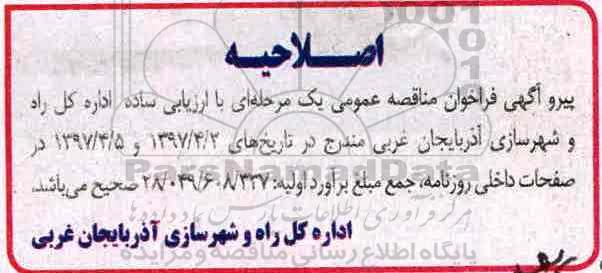 اصلاحیه
پیرو آگهی فراخوان مناقصه عمومی یک مرحله‌ای با ارزیابی ساده اداره کل راه
و شهرسازی آذربایجان غربی مندرج در تاریخ‌های ۱۳۹۷/۴/۲ و ۱۳۹۷/۴/۵ در
صفحات داخلی روزنامه، جمع مبلغ برآورد اولیه: ۲۸/۰۳۹/۶۰۸/۳۲۷ صحیح می‌باشد.
اداره کل راه و شهرسازی آذربایجان غربی
ParsNamadData
پایگاه اطلاع رسانی مناقصه و مزایده